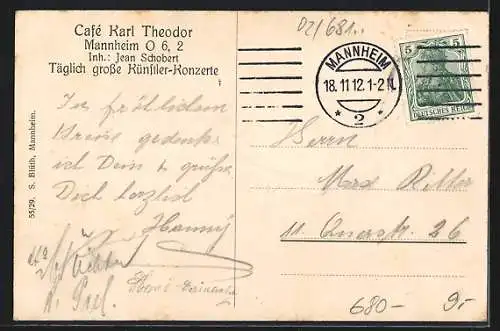 Café Karl Theodor
Mannheim O 6, 2
Inh.: Jean Schobert
Täglich große Künstler-Konzerte
55/29. S. Blüth, Mannheim.
02/681..
MANNHEIM
18.11.12.1-2 N.
* 2 *
5 5
DEUTSCHES REICH
In fröhlichem
Kreise gedenkt
ich Dein & grüße
Dich herzlich
Hanny
Herrn
Max Ritter
11. Querstr. 26
680-
9,-